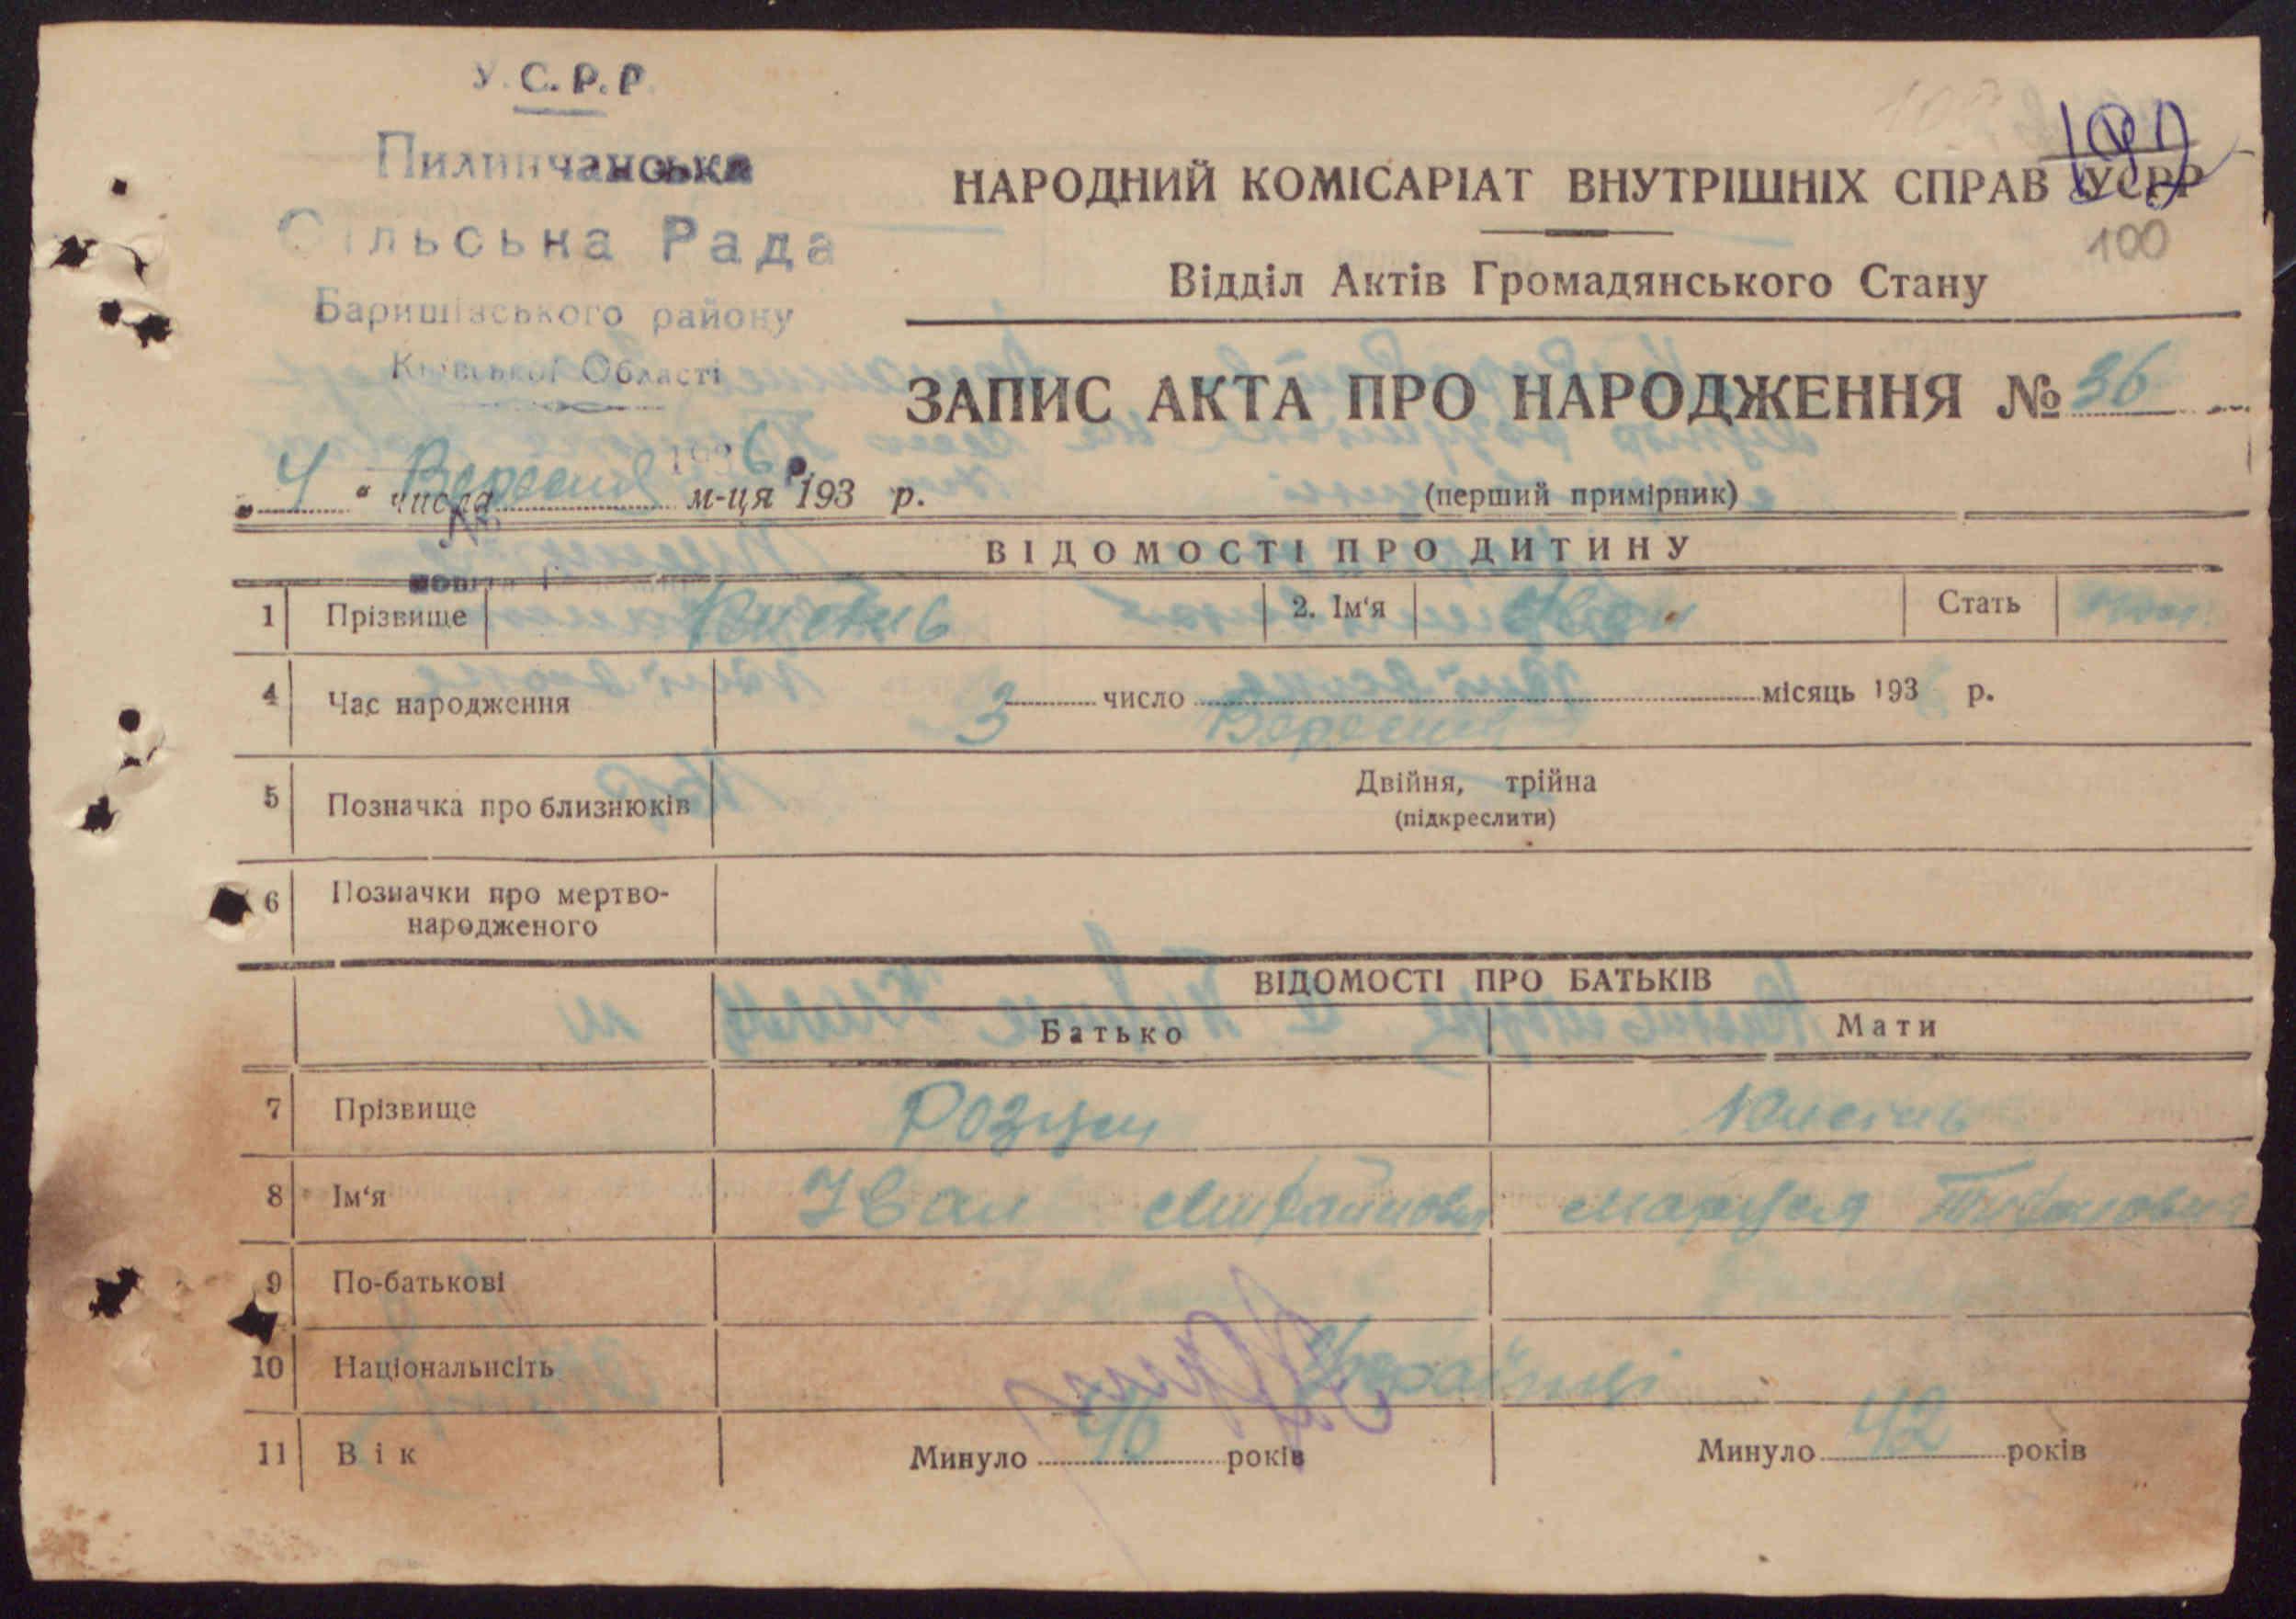 У.С.Р.Р.
Пилипчанська
Сільська Рада
Баришівського району
Київської Області
1936 р.
№
100
НАРОДНИЙ КОМІСАРІАТ ВНУТРІШНІХ СПРАВ УСРР
Відділ Актів Громадянського Стану
ЗАПИС АКТА ПРО НАРОДЖЕННЯ № 36
„ 4 “ числа Вересня м-ця 193 р.
(перший примірник)
ВІДОМОСТІ ПРО ДИТИНУ
1 Прізвище 2. Ім‘я Стать
4 Час народження 3 число Вересня місяць 193 р.
5 Позначка про близнюків Двійня, трійна
(підкреслити)
6 Позначки про мертво-
народженого
ВІДОМОСТІ ПРО БАТЬКІВ
Батько Мати
7 Прізвище Розум
8 Ім‘я Іван Маруся
9 По-батькові
10 Національнсіть Українці
11 Вік Минуло 46 років Минуло 42 років